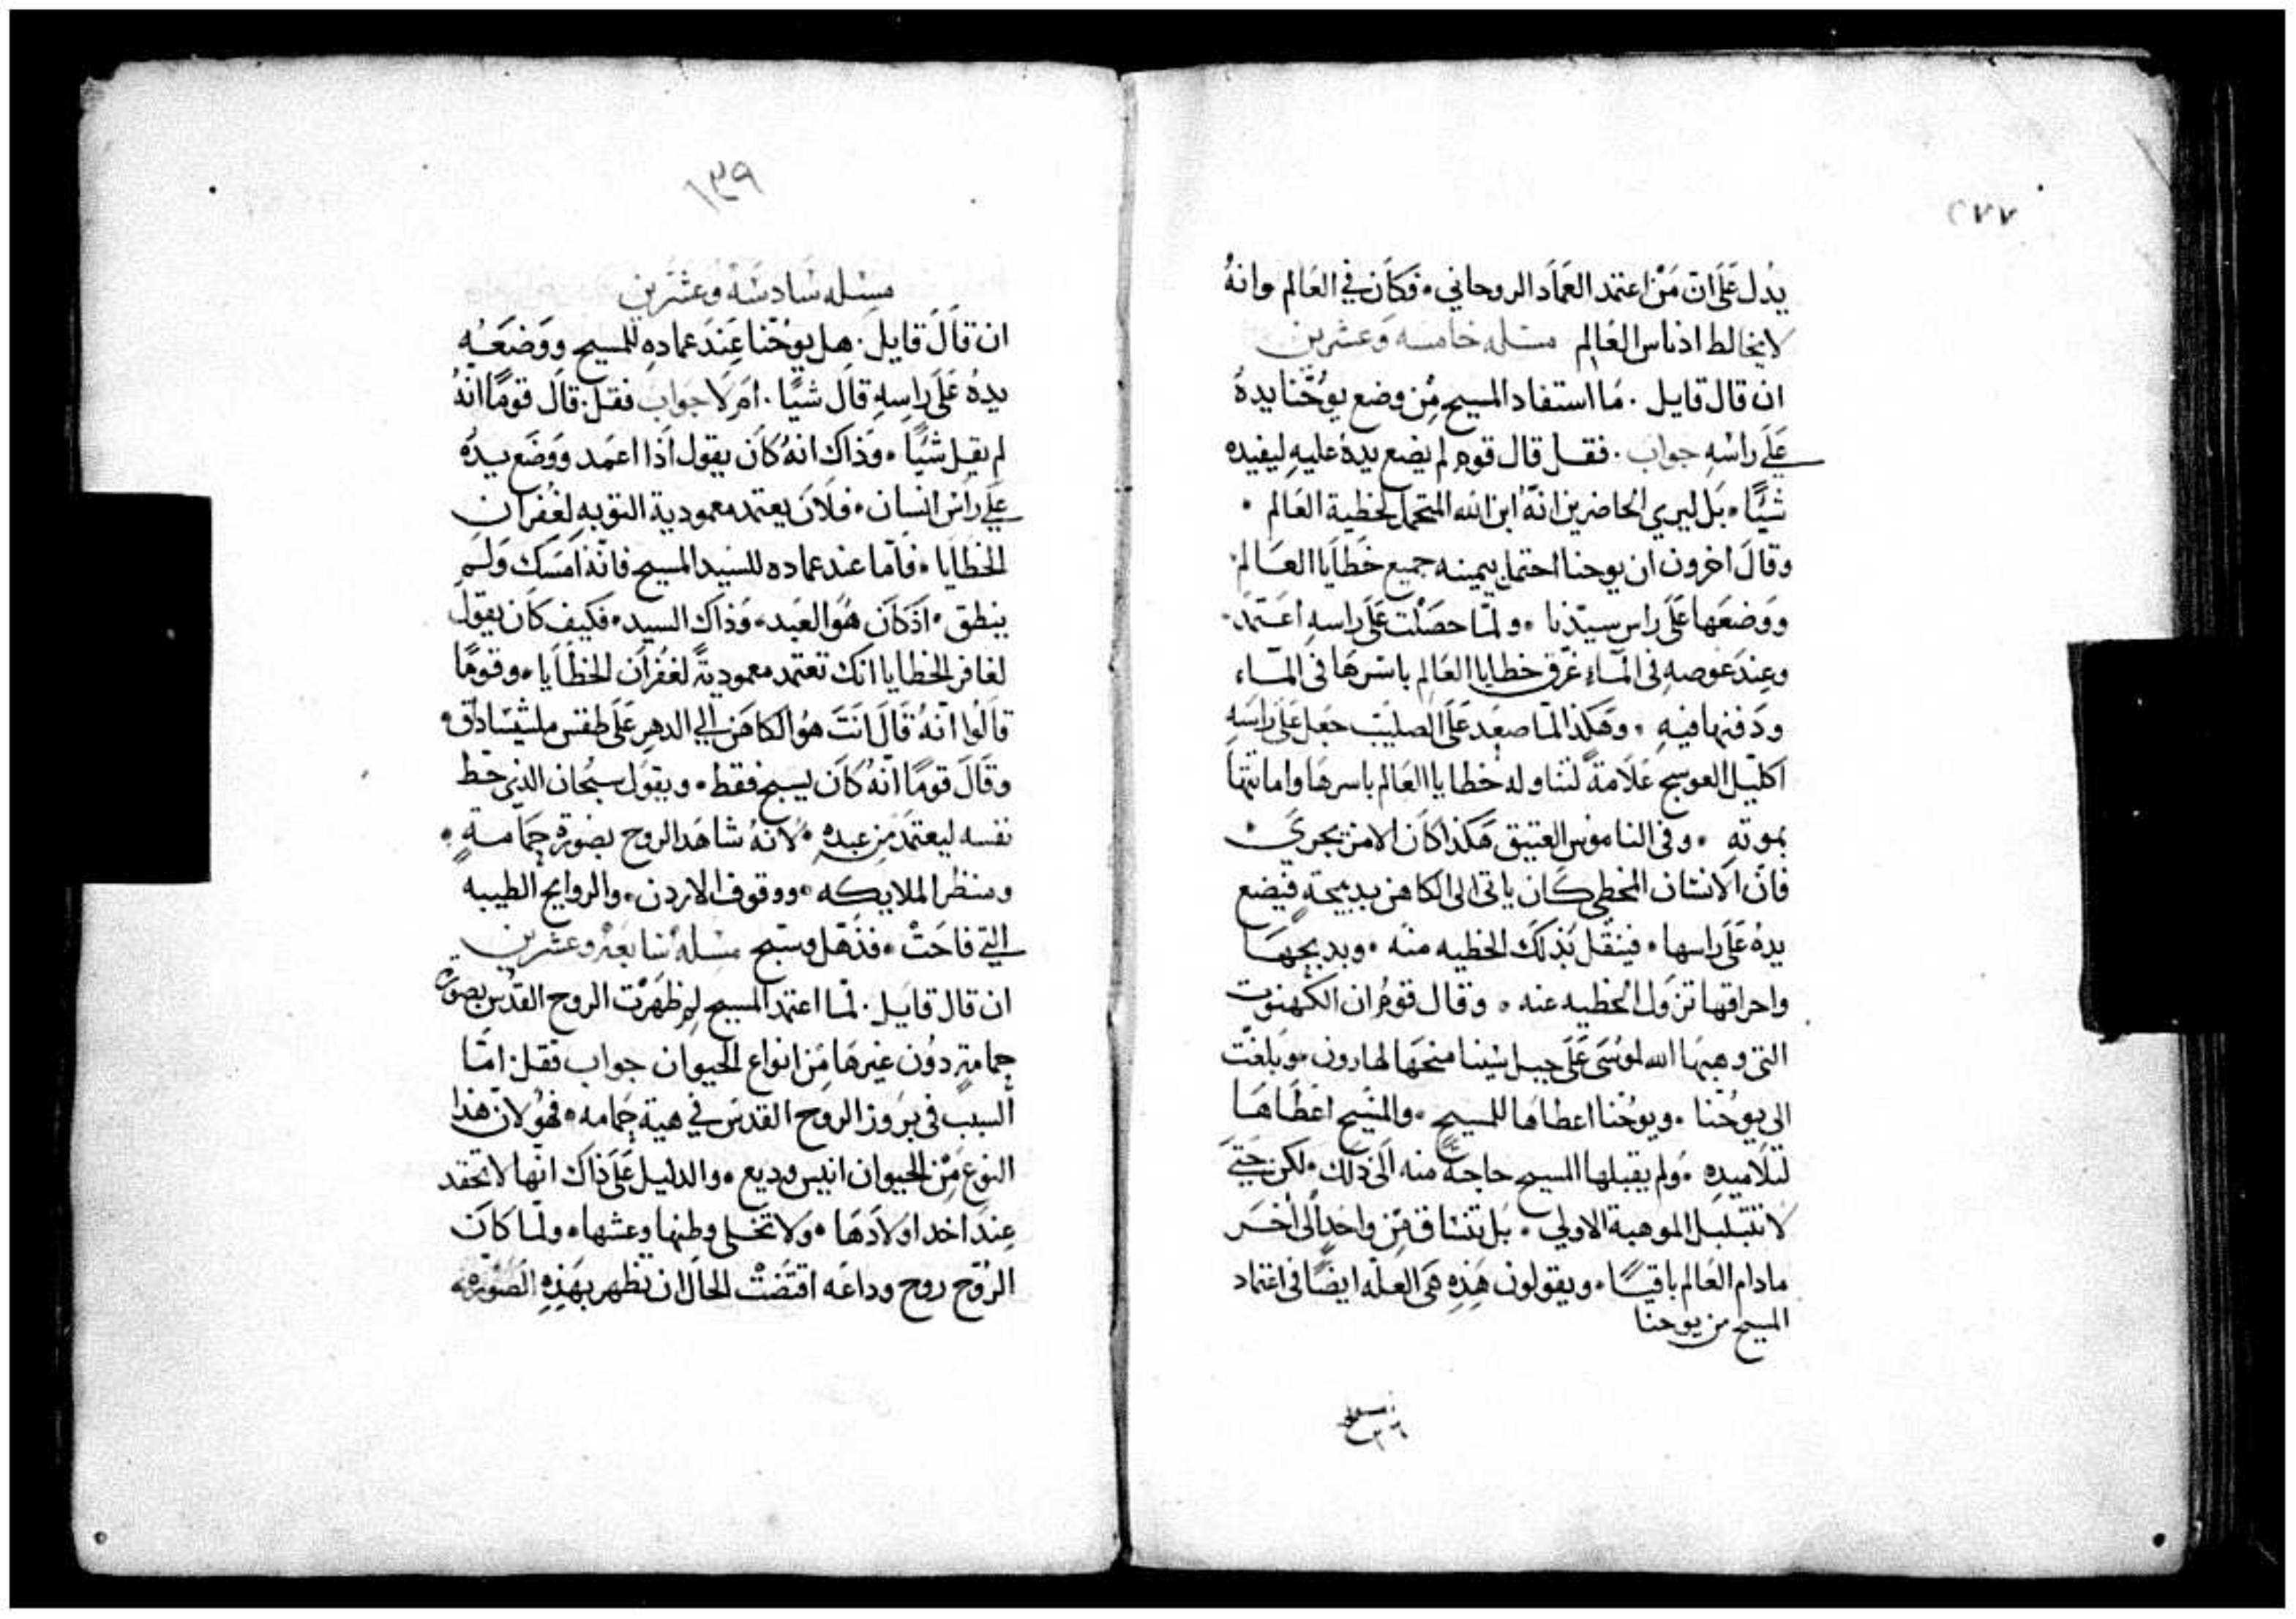 ٢٧٧
يدل عَلَى ان مَنْ اعتمد العَمَاد الروحاني · فَكاَن في العَالم وانهُ
لا يخالط ادناس العَالم مسله خامسه وعشرين
ان قال قايل · مَا استفاد المسيح مِن وضع يوُحَّنا يدهُ
عَلَى راسْهِ جواب · فقل قال قوم لم يضع يدهُ عليهِ ليفيده
شيًّا · بَل ليري الحاضرين انَّهُ ابن الله المتحمل لخطية العَالم ·
وقالَ اخرون ان يوحنا احتمل بيمينه جميع خَطاَيا العَالم ·
ووَضعَها عَلَى راس سيّدنا · ولمّا حصَلَت عَلَى راسهِ اعتمدَ ·
وعِندَ غوصهِ في المآء غرّق خطايا العَالِم باسرهَا في المآء
ودَفنها فيهِ · وهَكذا لمّا صعِدَ عَلَى الصليب جَعل عَلَى راسَهِ
اكليل العوسج عَلاَمةً لتناوله خطايا العَالم باسرهَا واماتتها
بموتهِ · وفي الناموس العتيق هَكذا كاَن الامر يجريَ ·
فانّ الانسَان المخطي كَان ياتي الى الكاهن بدبيحةٍ فيَضع
يدهُ عَلَى راسها · فينقل بَذلكَ الخطيه منه · وبدبحِهَا
واحراقها تزول الخطيه عنه · وقال قومُ ان الكَهنوت
التي وهبهَا الله لموُسَى عَلَى جبل سْينا منحَها لهارون · وبَلغتْ
الى يوُحّنا · ويوُحّنا اعطاهَا للمسيح · والمسَيح اعَطَاهَا
لتَلاَميدهِ · ولم يقبلها المسيح حاجةً منه الَى ذَلك · لكن حَتىَ
لا تتبلبل الموهبة الاولي · بَل تتسَاق مِن واحدٍ الى اخَر
مادام العَالم باقيًا · ويقولون هَذِهِ هَىَ العَلّه ايضًا في اعتماد
المسيح من يوحنا
١٣٩
مسَله سَادسَه وعشرين
ان قاَلَ قايلَ · هل يوُحّنا عِندَ عمادهِ للمسيح ووَضعَهُ
يدهُ عَلَى راسِهِ قاَل شيًا · اَم لاَ جوَاب فقل · قاَل قومًا انّهُ
لم يقل شَيًا · وَذاك انهُ كاَن يقول اذَا اعَمد ووَضَع يدُهُ
عَلَى رَاسَ انسَان · فلاَن يعتمد معمودية التوبه لغُفران
الخطايا · فاَمّا عند عماده للسَيد المسيح فانّهُ امَسَك ولَم
ينطق · اذكاَن هُوَ العَبد · وَذاك السيد · فكيف كاَن يقول
لغافر الخطايا انك تعَتمد معموديةً لغفُرَان الخطَايا · وقومًا
قاَلوُا انّهُ قاَلَ انتَ هوُ الكاهَن الي الدهرِ عَلَى طقس ملشيسَادَاق ·
وقَالَ قومًا انّهُ كاَن يسبح فقط · ويقوَل سبُحان الذي حَط
نفسه ليعتمدَ مِن عبدهِ · لانهُ شاهَد الروح بصَورةِ حَمَامةٍ ·
ومنظر الملايكه · ووقوف الاردن · والروايح الطيبه
التي فاحَتْ · فذَهَل وسَبح مسَلهْ سَابعَهْ وعشرين
ان قال قايل · لمّا اعتمد المسيح لم ظَهرَت الروح القدُس بصَورة
حمامةٍ دوُن غيرهَا مِن انواع الحيوان جواب فقل · امّا
السَبب في برَوز الروح القدسَ في هيئة حَمَامه · فهوُ لانّ هَذا
النوع مِن الحيوان انيس وديع · والدليل عَلَى ذاَك انّها لا تحقد
عِندَ اخد اولاَدهَا · وَلا تتَخلى وطنها وعشها · ولمّا كاَن
الرُوَح روح وداعَه اقتَضَتْ الحاَل ان تظهر بهَذِهِ الصَوْرَه ·